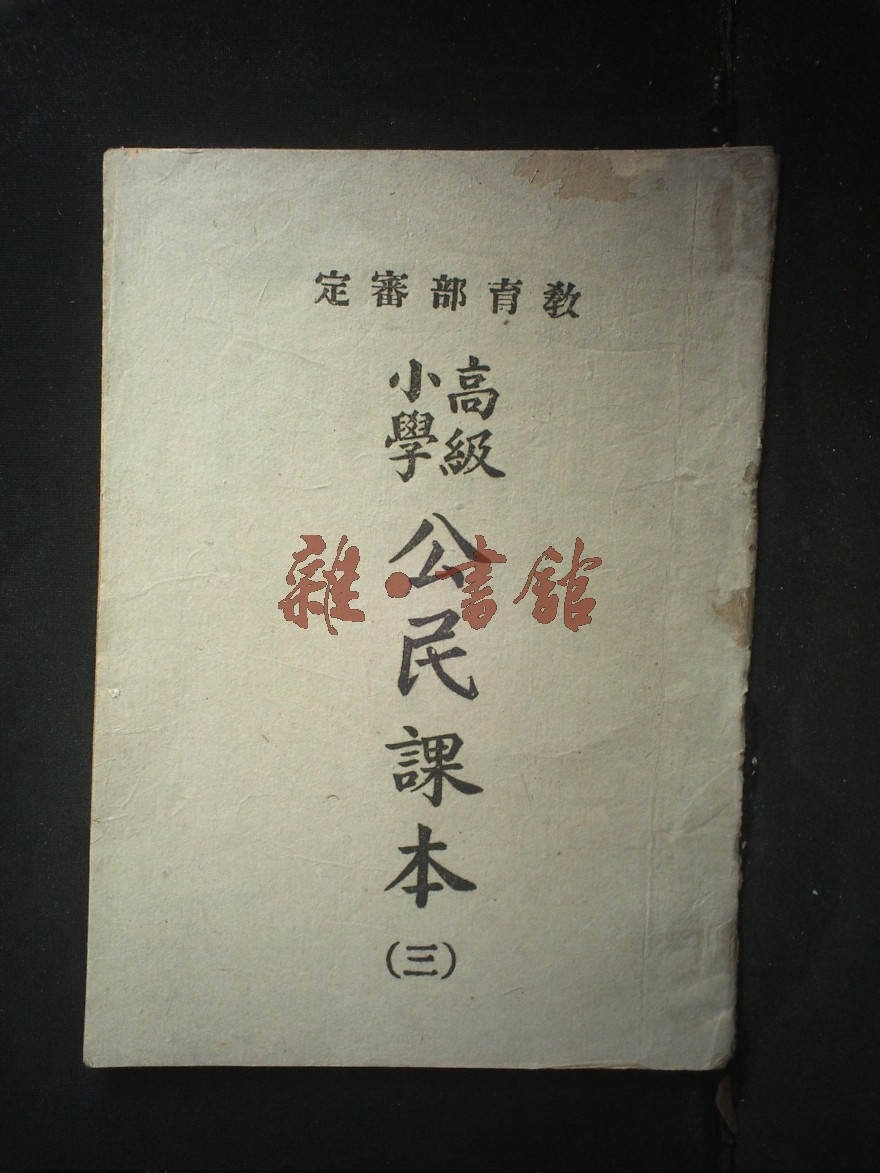 教育部審定
高級
小學
公民課本
(三)
雜·書館